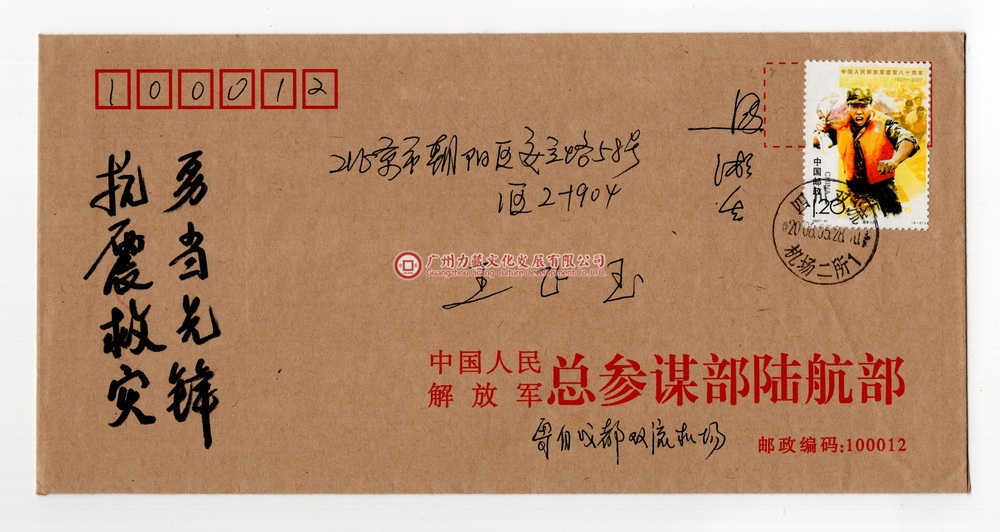 100012
中国人民解放军建军八十周年
1927-2007
中国邮政
CHINA
1.20
北京市朝阳区安立路58号
1区2-1904
四川
2008.05.28
机场二所1
广州力蓝文化发展有限公司
王 玉
勇当先锋
抗震救灾
中国人民
解放军
总参谋部陆航部
寄自成都双流机场
邮政编码:100012